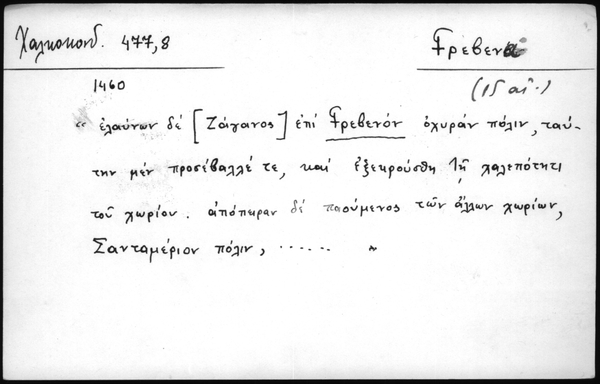 Χαλκοκονδ. 477,8
Γρεβενά
(15 αἰ.)
1460
" ἐλαύνων δέ [Ζάγανος] ἐπί Γρεβενόν ὀχυράν πόλιν, ταύ-
την μέν προσέβαλλέ τε, καί ἐξεκρούσθη τῇ χαλεπότητι
τοῦ χωρίου. ἀπόπειραν δέ ποούμενος τῶν ἄλλων χωρίων,
Σανταμέριον πόλιν, ...... "